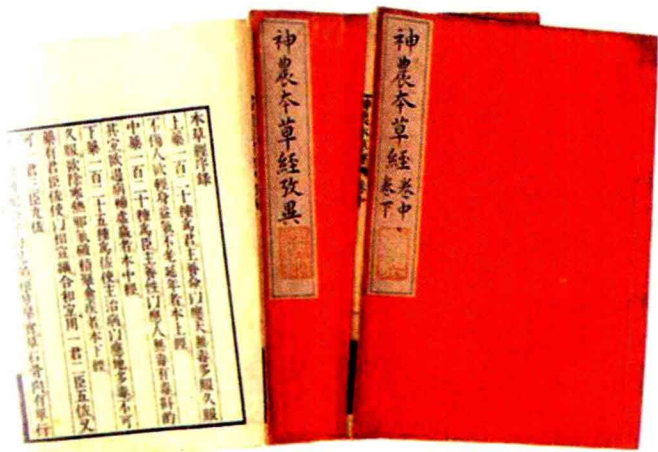 神農本草經 卷中 卷下
神農本草經攷異
本草經序錄
上藥一百二十種爲君主養命以應天無毒多服久服
不傷人欲輕身益氣不老延年者本上經
中藥一百二十種爲臣主養性以應人無毒有毒斟酌
其宜欲遏病補虛羸者本中經
下藥一百二十五種爲佐使主治病以應地多毒不可
久服欲除寒熱邪氣破積聚愈疾者本下經
藥有君臣佐使以相宣攝合和宜用一君二臣五佐又
可一君三臣九佐